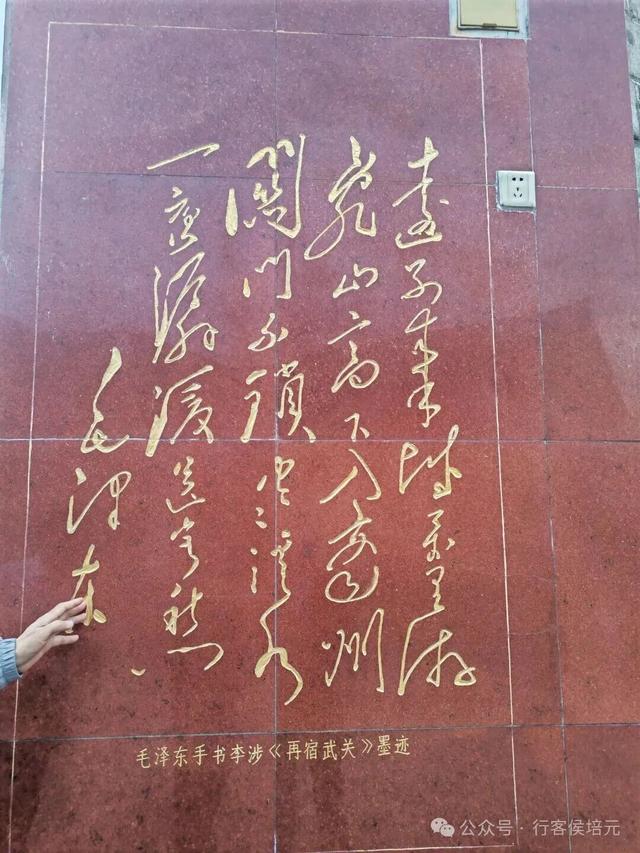 遠別秦城萬里游
亂山高下入商州
關門不鎖寒溪水
一夜潺湲送客愁
毛澤東
毛泽东手书李涉《再宿武关》墨迹
公众号·行客侯培元